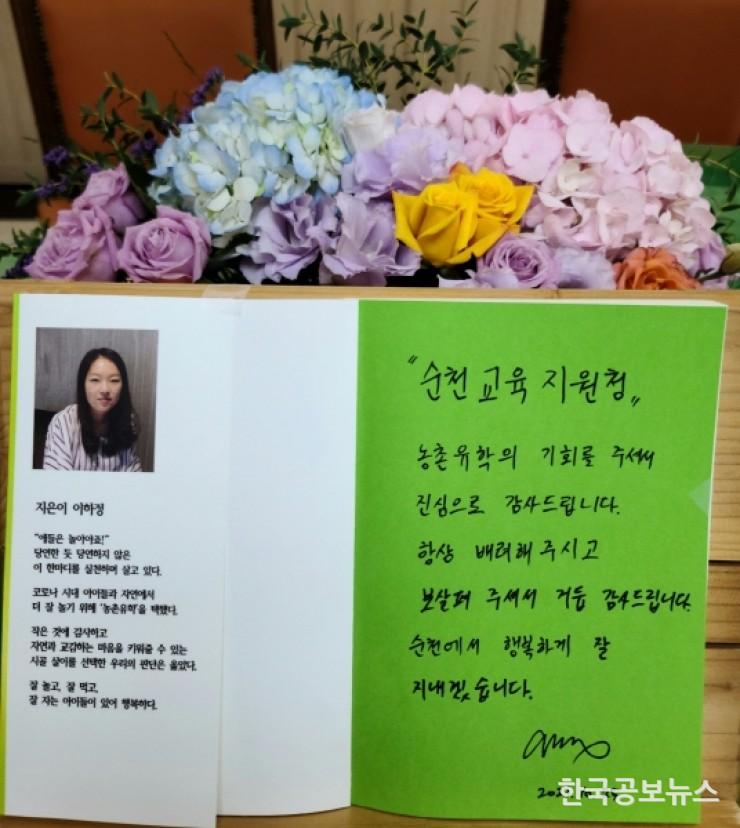 지은이 이하정
"애들은 놀아야죠!"
당연한 듯 당연하지 않은
이 한마디를 실천하며 살고 있다.
코로나 시대 아이들과 자연에서
더 잘 놀기 위해 '농촌유학'을 택했다.
작은 것에 감사하고
자연과 교감하는 마음을 키워줄 수 있는
시골 살이를 선택한 우리의 판단은 옳았다.
잘 놀고, 잘 먹고,
잘 자는 아이들이 있어 행복하다.
"순천 교육 지원청"
농촌유학의 기회를 주셔서
진심으로 감사드립니다.
항상 배려해 주시고
보살펴 주셔서 거듭 감사드립니다.
순천에서 행복하게 잘
지내겠습니다.
한국공보뉴스